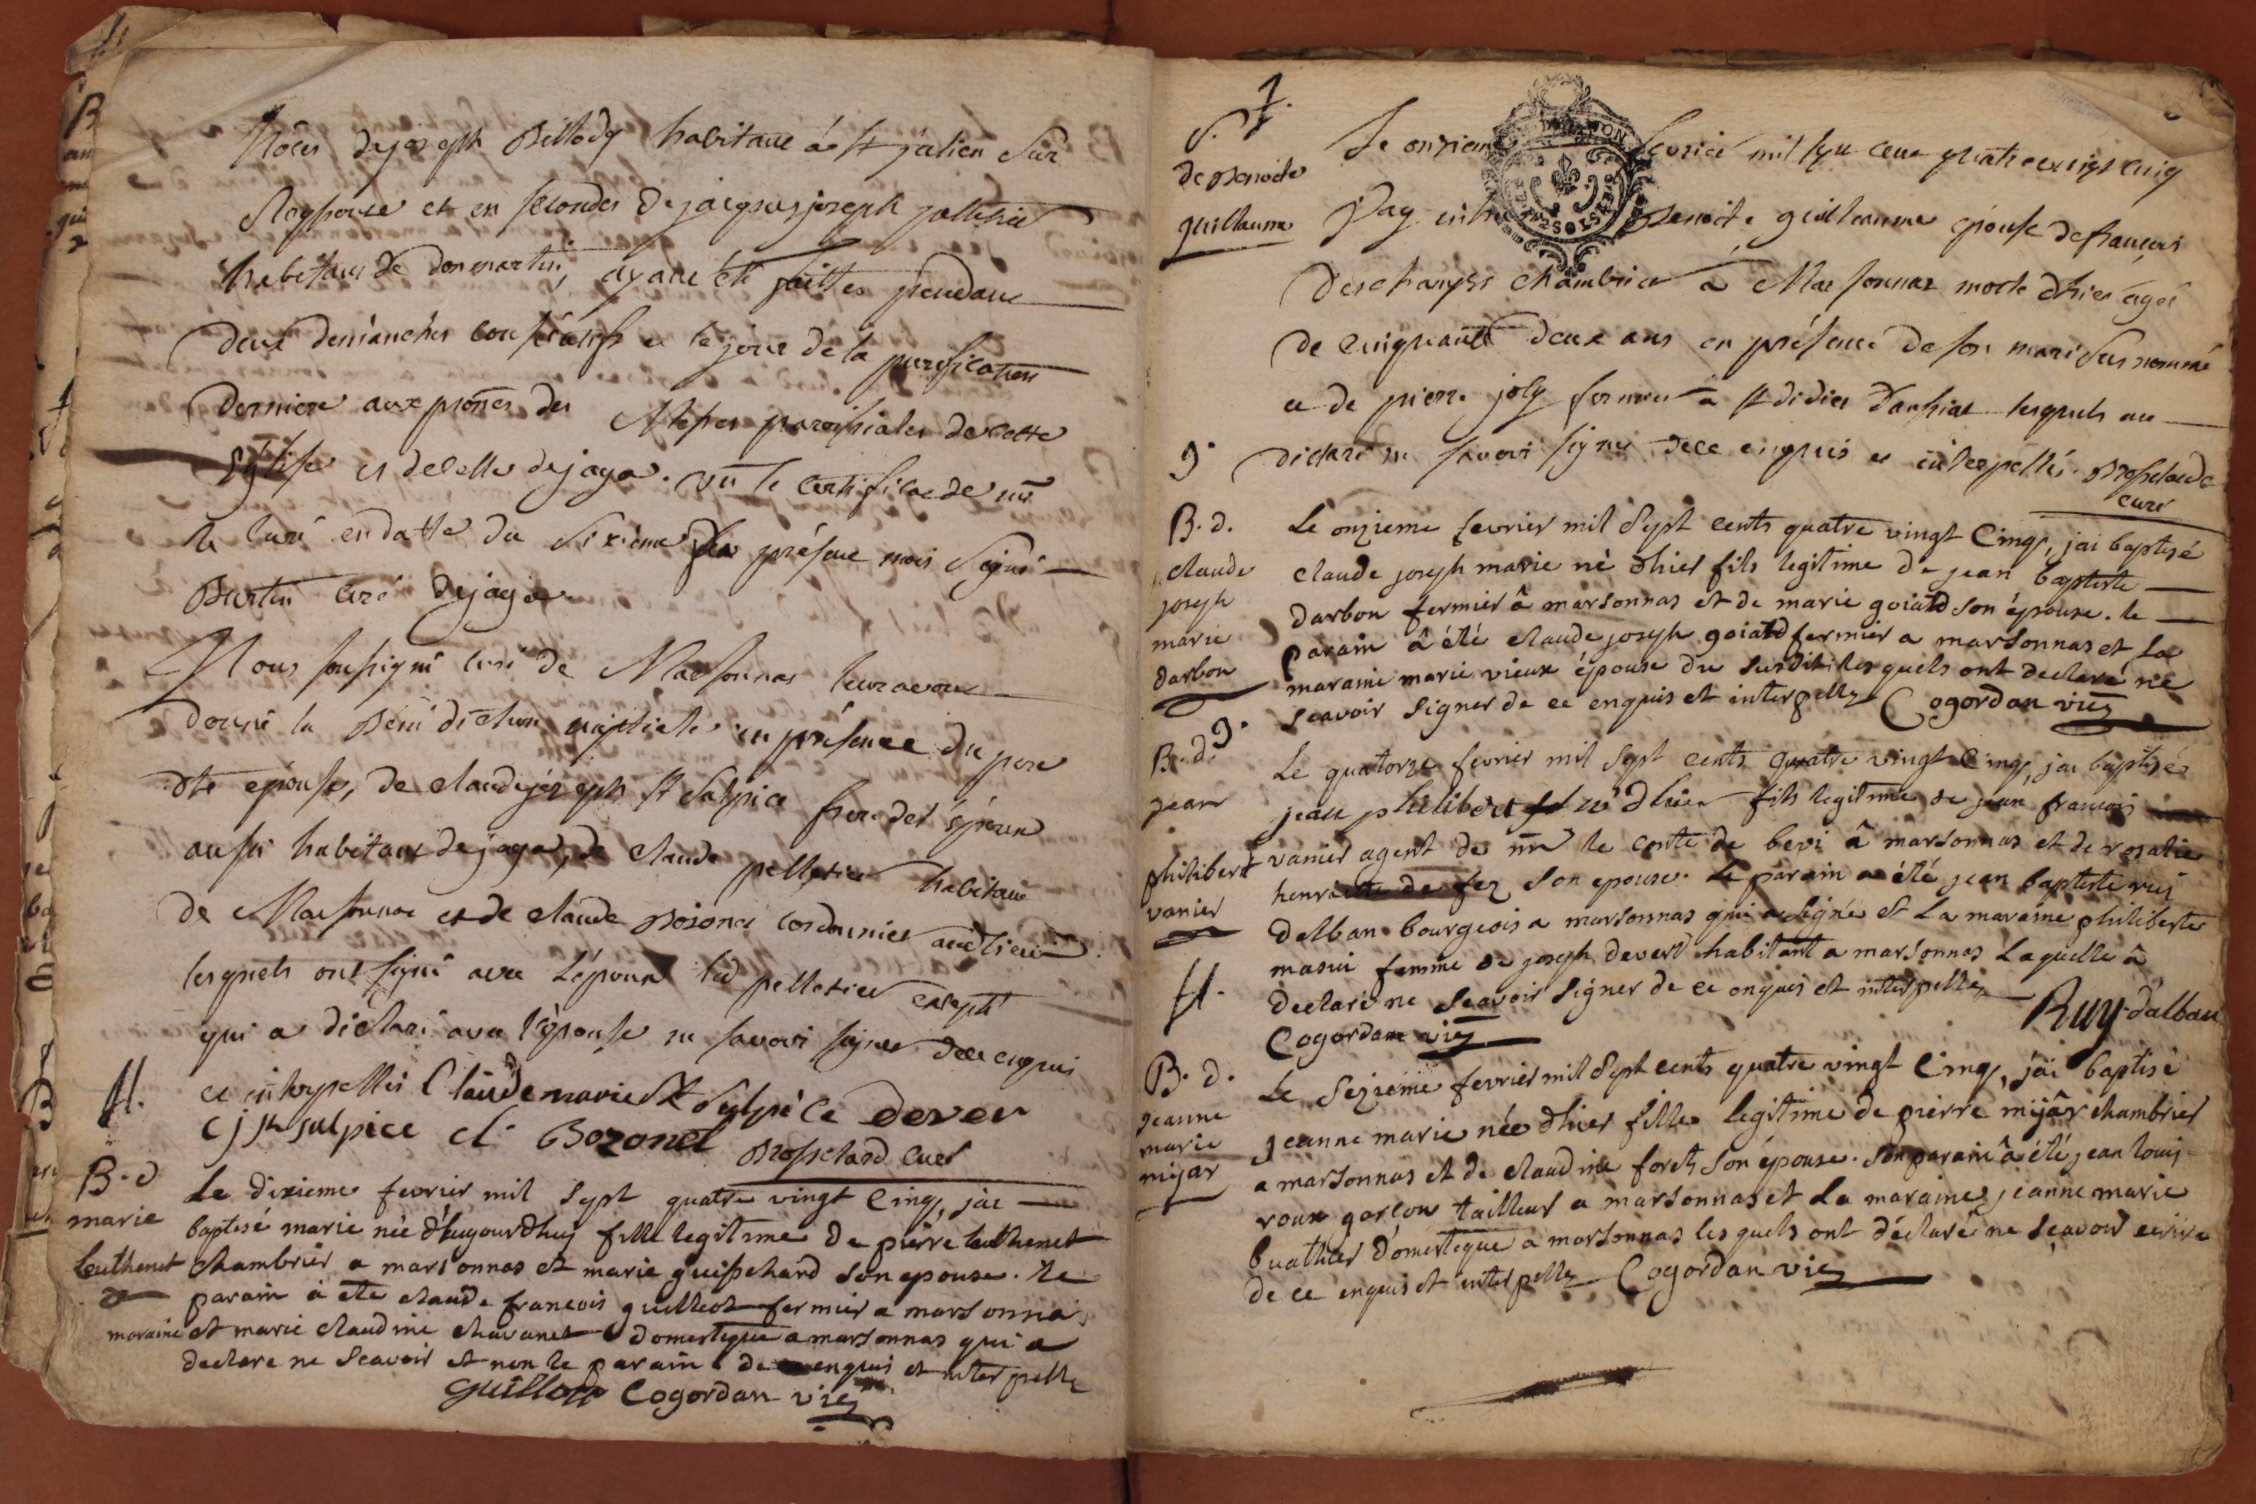 Nôces de joseph Billody habitant à st julien sur
Reyssouze et en secondes de jacques joseph pelletier
habitant de donmartin, ayant été faittes pendant
deux demanches consécutifs et le jour de la purification
derniere aux prônes des Messes paroissiales de cette
Eglise et de celle de jaya. vû le certificat de mr
le curé en datte du sixieme du présent mois signé
Burtin curé de jaya
Nous soussigné curé de Marsonnas leur avons
donné la Bénédiction nuptiale en présence du pere
dte epouse, de claude joseph st Sulpice frere de l'époux
aussi habitant de jaya, de claude pelletier habitant
de Marsonnas et de claude Bozonet cordonnier audt lieu
lesquels ont signé avec l'époux led pelletier excepté
qui a déclaré avec l'épouse ne savoir signer de ce enquis
et interpellés Claude marie St Sulpice dever
C j st sulpice cl. Bozonet
Brosselard curé
B. d
marie
leuthenet
Le dixieme fevrier mil sept quatre vingt Cinq, jai
baptisé marie née d'huyourdhuy fille legitime de pierre leuthenet
chambrier a marsonnas et marie guischard son epouse. Le
parain à eté claude francois guilleot fermier a marsonna
maraine et marie claudine chavanet domestique a marsonnas qui a
declare ne scavoir et non le parain de enquis et interpelle
Guillot Cogordan vic
S. 7.
de Benoite
guillaume
Le onzieme fevrier mil sept cent quatre vingt cinq
j'ay enterré Benoite guillaume épouse de francois
deschamps chambrier à Marsonnas morte d'hier agée
de cinquante deux ans en présence de son mari susnommé
et de pierre joly fermier à st didier d'aussiat lesquels ont
déclaré ne savoir signer de ce enquis et interpellés. Brosselard
curé
9.
B. d.
claude
joseph
marie
darbon
Le onzieme fevrier mil sept cents quatre vingt Cinq, jai baptisé
claude joseph marie né dhier fils legitime de jean baptiste
darbon fermier à marsonnas et de marie goiard son épouse. le
parain à été claude joseph goiard fermier a marsonnas et La
maraine marie vieux épouse du susdit lesquels ont declaré ne
scavoir signer de ce enquis et interpellz Cogordan vic
9.
B. d.
jean
philibert
vanier
Le quatorze fevrier mil sept cents quatre vingt Cinq, jai baptisé
jean philibert né dhier fils legitime de jean francois
vanier agent de mr le conte de bevi à marsonnas et de rosalie
henriette de fez son epouse. Le parain a été jean baptiste ruy
dalban bourgeois a marsonnas qui a signé et La maraine philiberte
masui femme de joseph devert habitant a marsonnas Laquelle à
declaré ne scavoir signer de ce enquis et interpelle
Ruy d'alban
Cogordan vic
B. d.
jeanne
marie
mijar
Le seizieme fevrier mil sept cents quatre vingt Cinq, jai baptisé
jeanne marie née dhier fille legitime de pierre mijar chambrier
a marsonnas et de claudine forets son épouse. son parain à été jean louis
roux garcon tailleur a marsonnas et La maraine jeanne marie
buathier domestique a marsonnas lesquels ont déclaré ne scavoir ecrire
de ce enquis et interpellz Cogordan vic